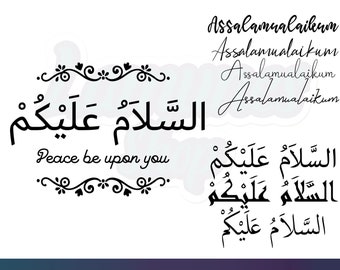 السَّلَامُ عَلَيْكُمْ
Peace be upon you
Assalamualaikum
Assalamualaikum
Assalamualaikum
Assalamualaikum
السَّلَامُ عَلَيْكُمْ
السَّلَامُ عَلَيْكُمْ
السَّلَامُ عَلَيْكُمْ